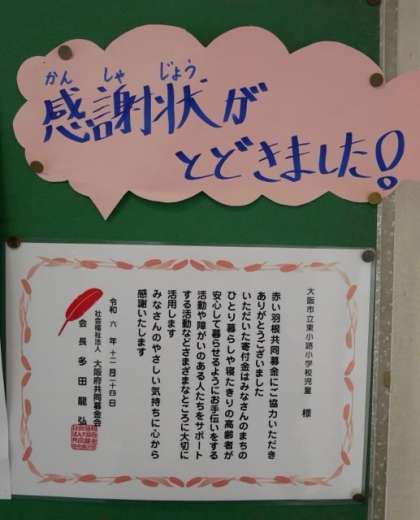 かん しゃ じょう
感謝状が
とどきました!
大阪市立東小路小学校児童 様
赤い羽根共同募金にご協力いただき
ありがとうございました
いただいた寄付金はみなさんのまちの
ひとり暮らしや寝たきりの高齢者が
安心して暮らせるようにお手伝いをする
活動や障がいのある人たちをサポート
する活動などさまざまなところに大切に
活用します
みなさんのやさしい気持ちに心から
感謝いたします
令和 六 年 十二 月 二十四 日
社会福祉法人 大阪府共同募金会
会長 多田龍弘